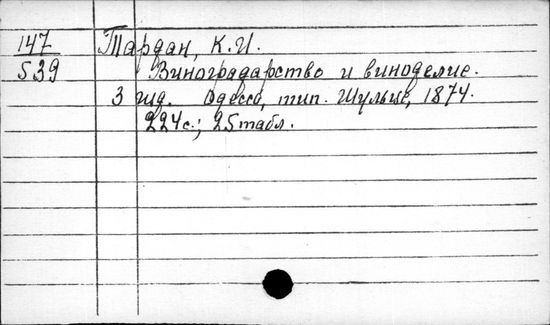 147 Тардан, К.И.
539 Виноградарство и виноделие.
3 изд. Одесса, тип. Шульце, 1874.
224с.; 25табл.